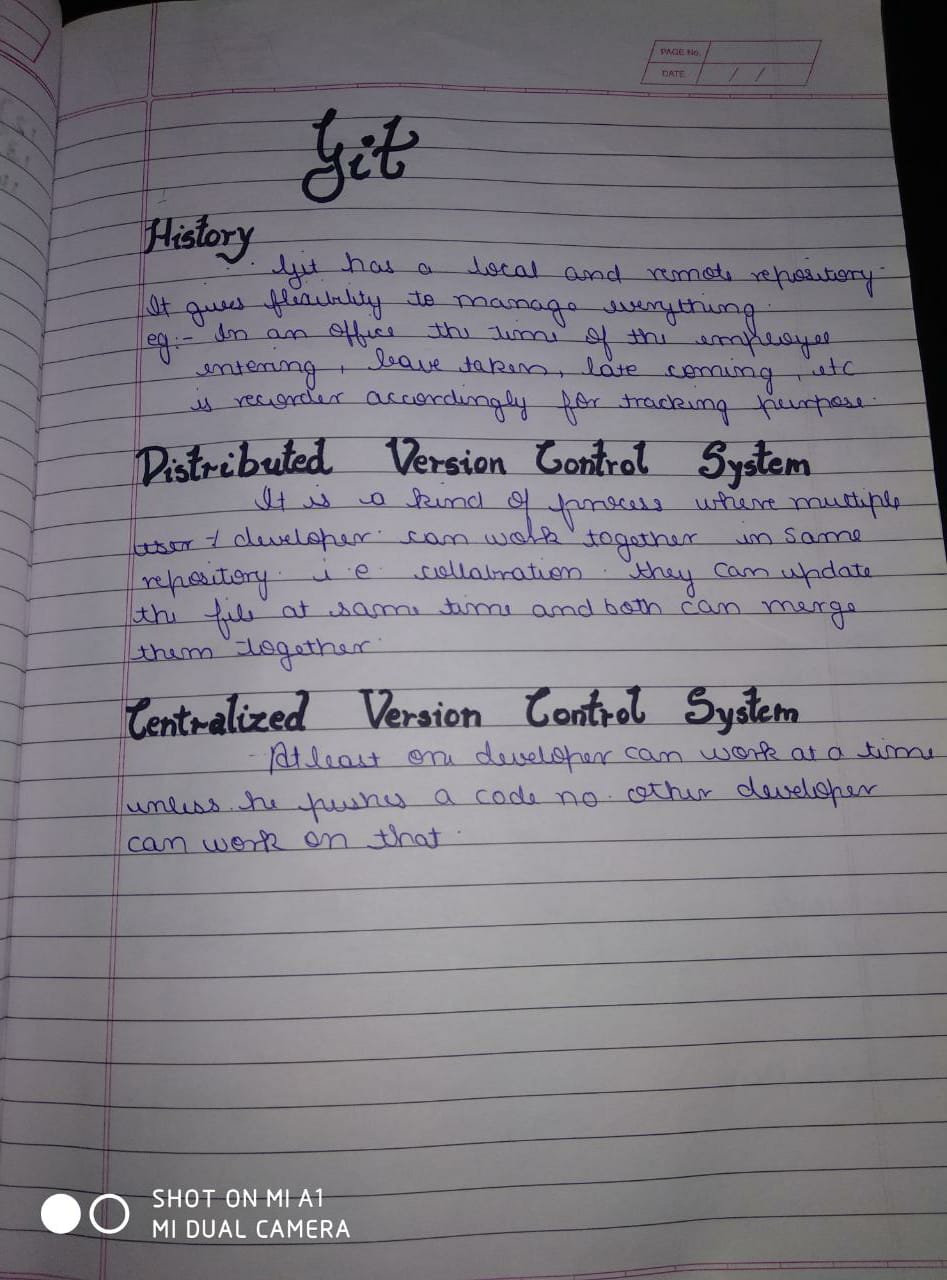 PAGE No.
DATE / /
Git
History
Git has a local and remote repository.
It gives flexibility to manage everything.
eg:- In an office the time of the employee
entering, leave taken, late coming, etc
is recorder accordingly for tracking purpose.
Distributed Version Control System
It is a kind of process where multiple
user / developer can work together in same
repository. i.e. collabration. they can update
the file at same time and both can merge
them together.
Centralized Version Control System
Atleast one developer can work at a time
unless he pushes a code no other developer
can work on that.
SHOT ON MI A1
MI DUAL CAMERA